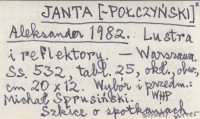 JANTA [-POŁCZYŃSKI]
Aleksander 1982. Lustra
i reflektory. — Warszawa.
Ss. 532, tabl. 25, okł., obw.,
cm 20 x 12. Wybór i przedm.:
Michał Sprusiński. WHP
Szkice o spotkaniach